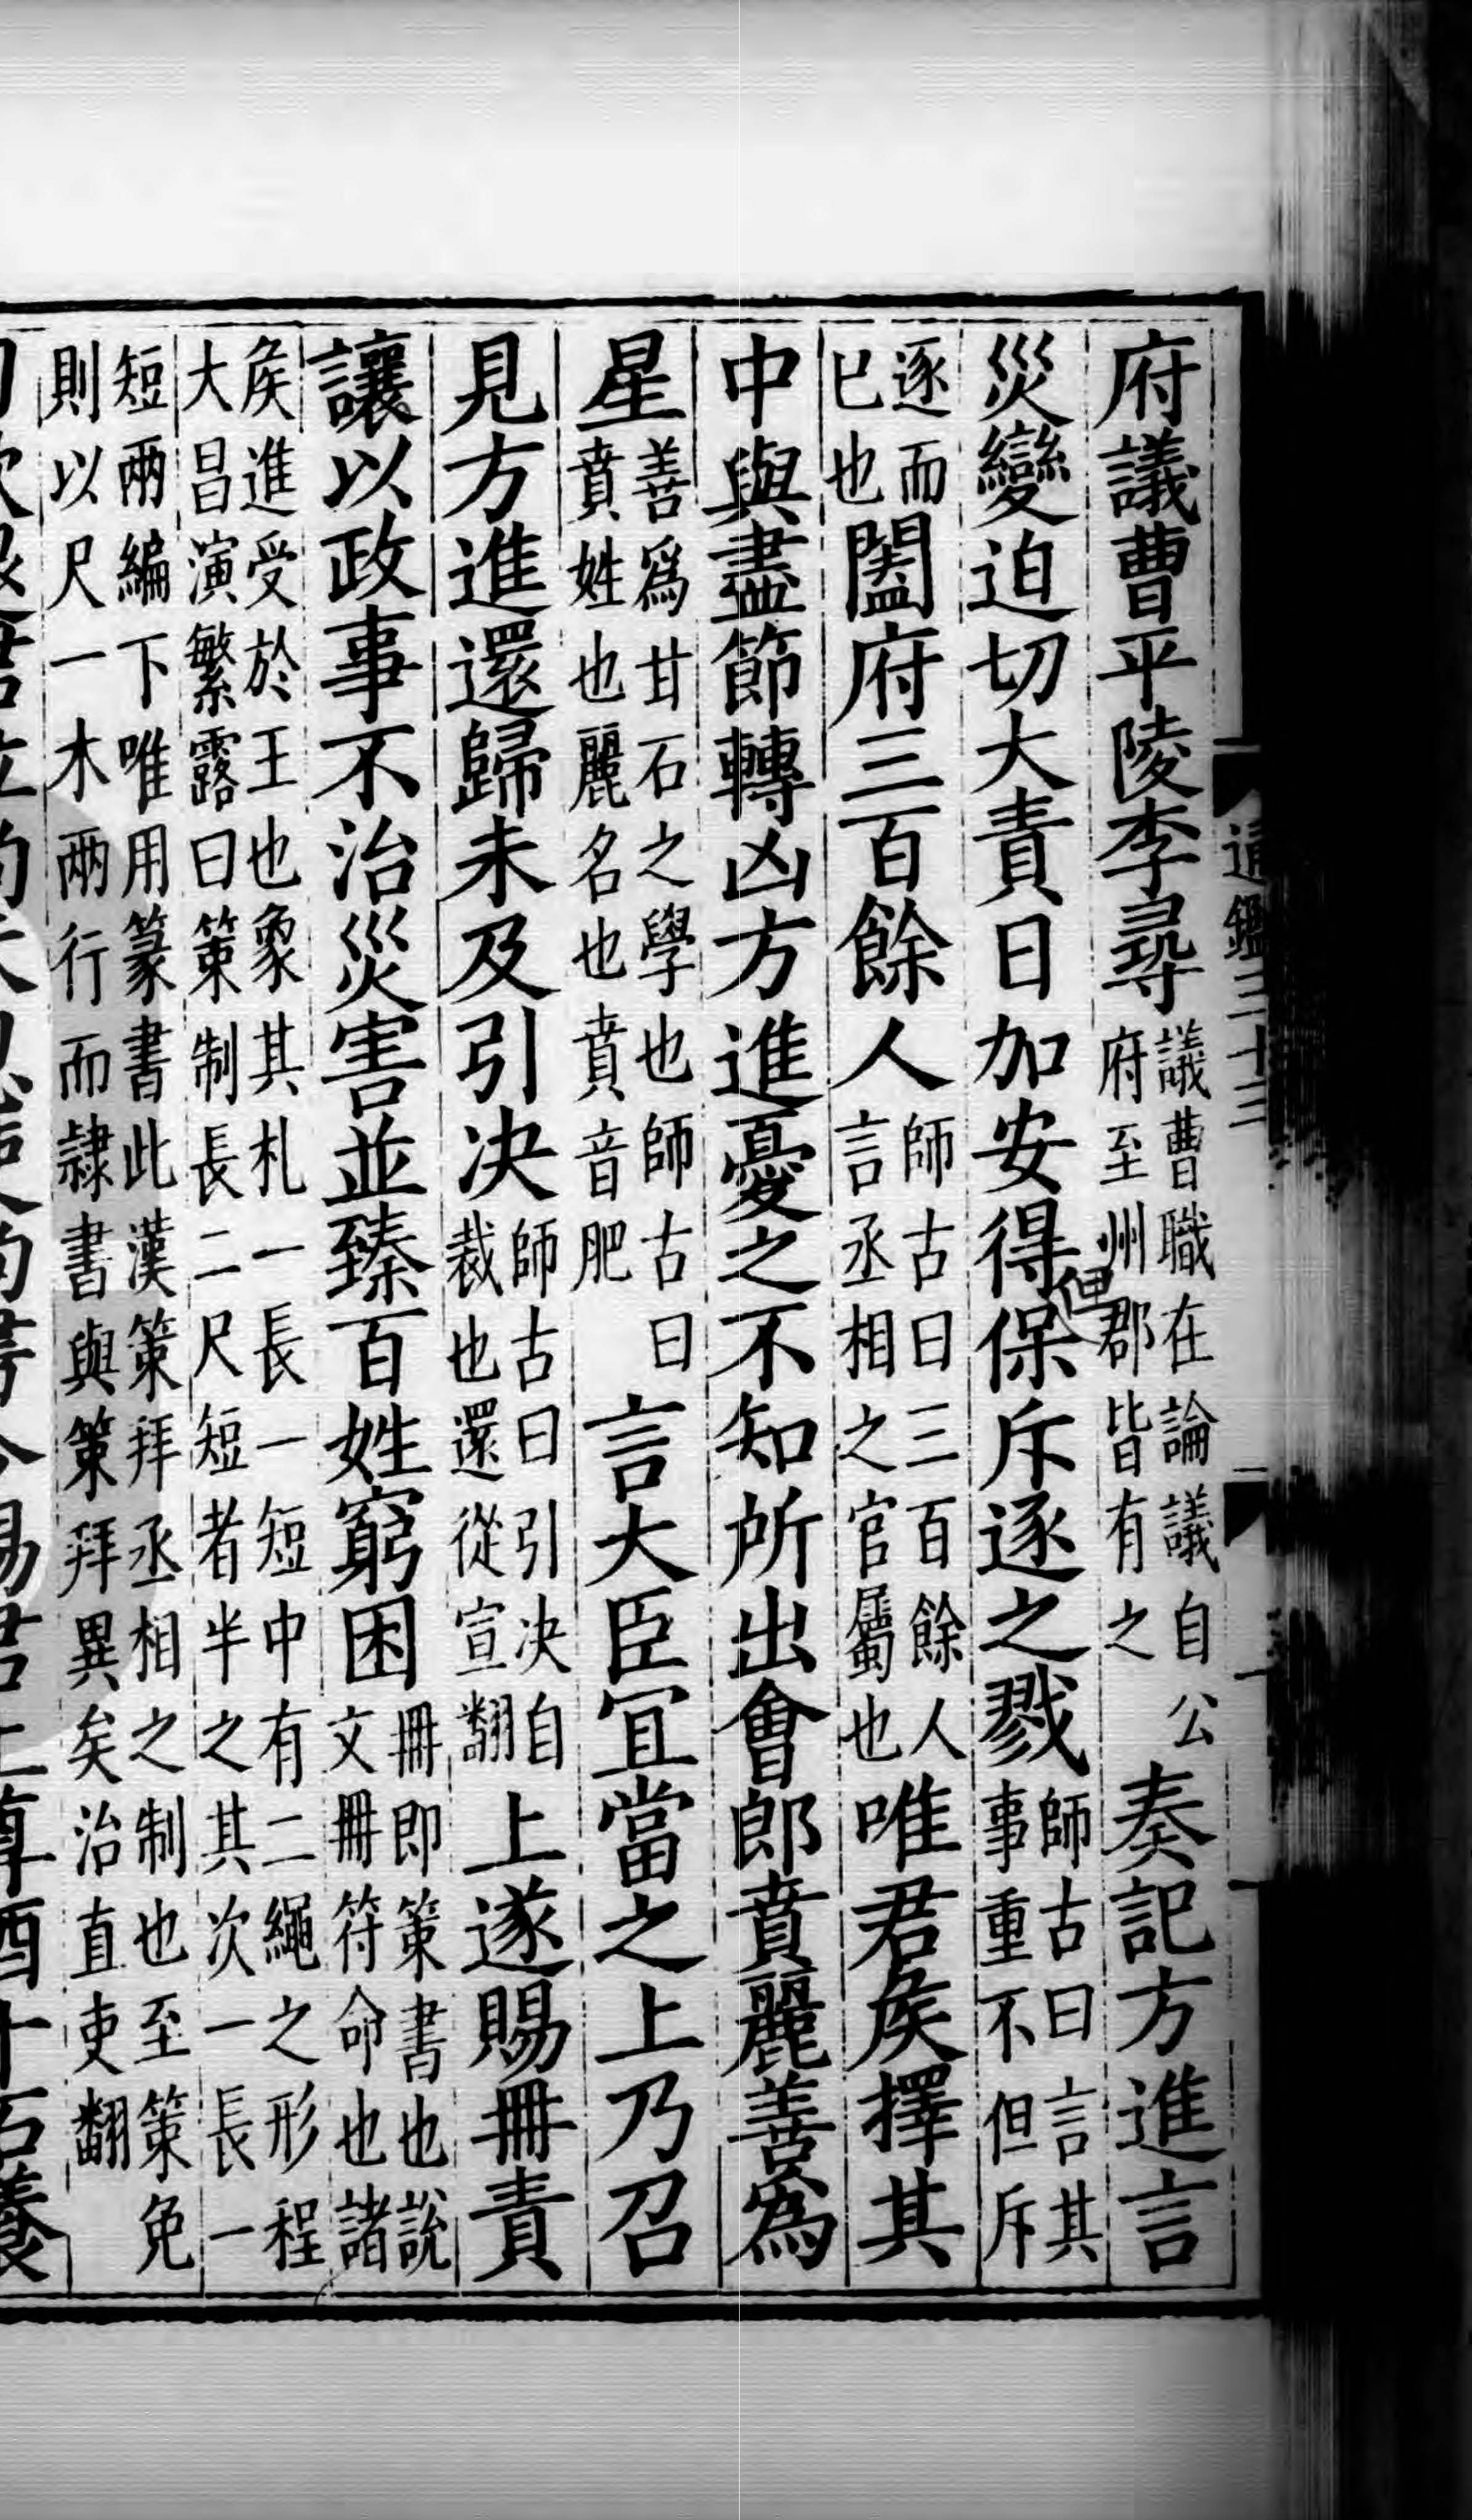 通鑑三十三
府議曹平陵李尋議曹職在論議自公府至州郡皆有之奏記方進言
災變迫切大責日加安得保斥逐之戮師古曰言其事重不但斥
但
逐而已也闔府三百餘人師古曰三百餘人言丞相之官屬也唯君矦擇其
中與盡節轉凶方進憂之不知所出會郎賁麗善爲
星善爲甘石之學也師古曰賁姓也麗名也賁音肥言大臣宜當之上乃召
見方進還歸未及引决師古曰引决自裁也還從宣翻上遂賜冊責
讓以政事不治災害並臻百姓窮困冊即策書也說文冊符命也諸
矦進受於王也象其札一長一短中有二繩之形程大昌演繁露曰策制長二尺短者半之其次一長一
短兩編下唯用篆書此漢策拜丞相之制也至策免則以尺一木兩行而隷書與策拜異矣治直吏翻